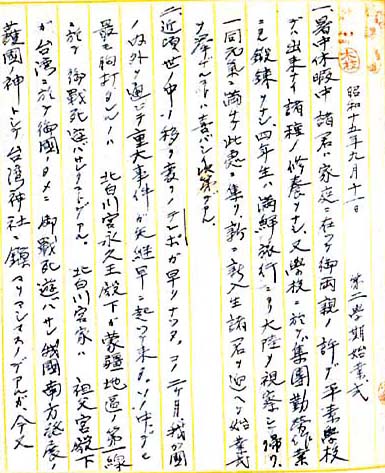 昭和十五年九月十一日　第二學期始業式
一、暑中休暇中諸君ハ家庭ニ在ツテ御両親ノ許デ平素學校
デハ出來ナイ諸種ノ修養ヲナシ、又學校ニ於テ集團勤労作業
ニモ鍛錬ヲナシ、四年生ハ満鮮旅行ニヨリ大陸ヲ視察シテ帰リ、
一同元気ニ満チテ此處ニ集リ、新ニ新入生諸君ヲ迎ヘテ始業式
ヲ挙ゲルコトハ喜バシイ次第デアル。
二、近頃世ノ中ノ移リ変リノテンポガ早クナツタ。コノ二ケ月我ガ國
ノ内外ヲ通ジテ重大事件ガ矢継早ニ起ツテ來タ。ソノ中デモ
最モ胸打タレルノハ　北白川宮永久王殿下ガ蒙疆地區ノ第一線
ニ於テ御戰死遊バサレタコトデアル。　北白川宮家ハ　祖父宮殿下
ガ台湾ニ於テ御國ノタメニ御戰死遊バサレ我國南方發展ノ
護國ノ神トシテ台湾神社ニ鎮マリマシマスノデアルガ今又